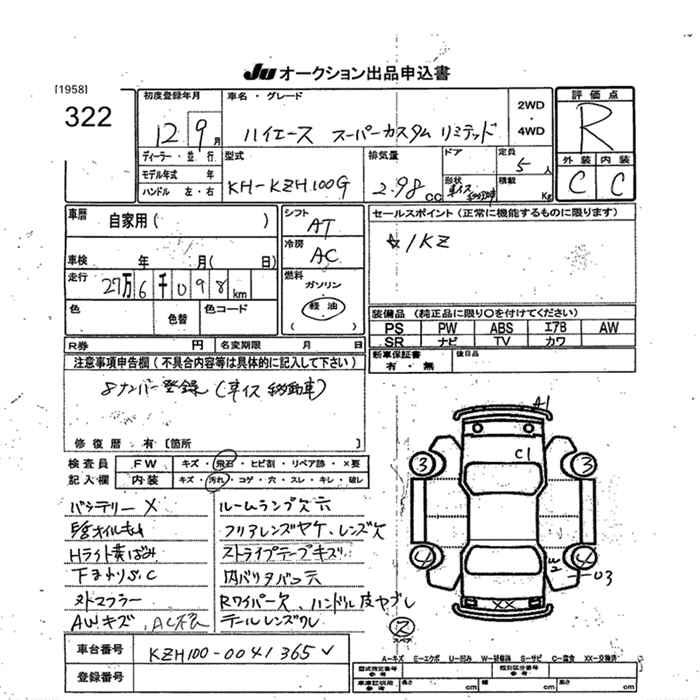 JU オークション出品申込書
[1958]
322
初度登録年月
車名・グレード
12 9月
ハイエース スーパーカスタム リミテッド
2WD
・
4WD
評価点
R
外装 内装
C C
ディーラー・並行
モデル年式 年
ハンドル 左・右
型式
KH-KZH100G
排気量
2.98cc
ドア
形状
車イス移動車
定員
5人
積載
Kg
車歴 自家用( )
車検 年 月( 日)
走行 27万6千098km
色
色替
色コード
シフト
AT
冷房
AC
燃料
ガソリン
軽油
( )
セールスポイント(正常に機能するものに限ります)
☆1KZ
装備品(純正品に限り○を付けてください)
PS PW ABS エアB AW
SR ナビ TV カワ
R券 円 名変期限 月 日
新車保証書
有・無
後日品
注意事項申告欄(不具合内容等は具体的に記入して下さい)
8ナンバー登録(車イス移動車)
修復歴 有[箇所 ]
検査員 FW キズ・飛石・ヒビ割・リペア跡・X要
記入欄 内装 キズ・汚れ・コゲ・穴・スレ・キレ・破レ
バッテリーX
ルームランプ欠穴
フリアレンズヤケ、レンズ欠
Hライト黄ばみ
ストライプテープキズ
下まわりS.C
内バリタバコ穴
外マフラー
Rワイパー欠、ハンドル皮ヤブレ
AWキズ、AC不良
テールレンズワレ
車台番号 KZH100-0041365
登録番号
A1
C1
3 3
4 4
W2
U3
XX
ス
スペア
A-キズ E-エクボ U-凹み W-補修跡 S-サビ C-腐食 XX-交換済
型式指定番号
参考
類別区分番号
参考
車庫証明用
参考
長さ cm 幅 cm 高さ cm